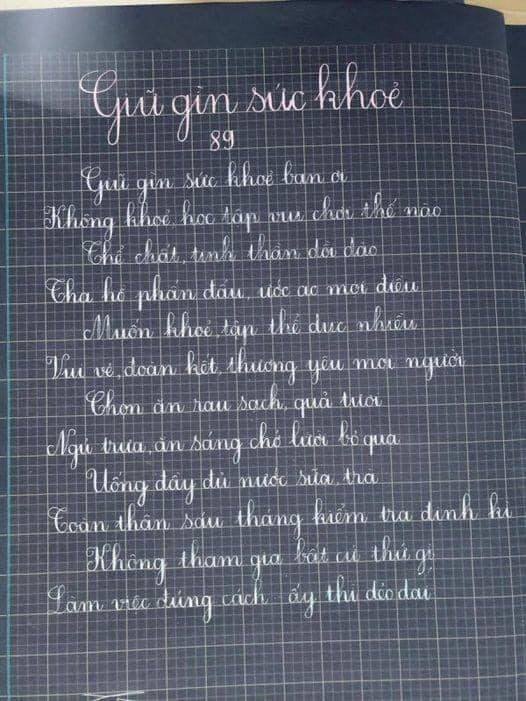 Giữ gìn sức khoẻ
89
Giữ gìn sức khoẻ bạn ơi
Không khoẻ, học tập vui chơi thế nào
Thể chất, tinh thần dồi dào
Tha hồ phấn đấu, ước ao mọi điều
Muốn khoẻ, tập thể dục nhiều
Vui vẻ, đoàn kết, thương yêu mọi người
Chọn ăn rau sạch, quả tươi
Ngủ trưa, ăn sáng chớ lười bỏ qua
Uống đầy đủ nước sữa, trà
Toàn thân sáu tháng kiểm tra định kì
Không tham gia bất cứ thứ gì
Làm việc đúng cách ấy thì dẻo dai